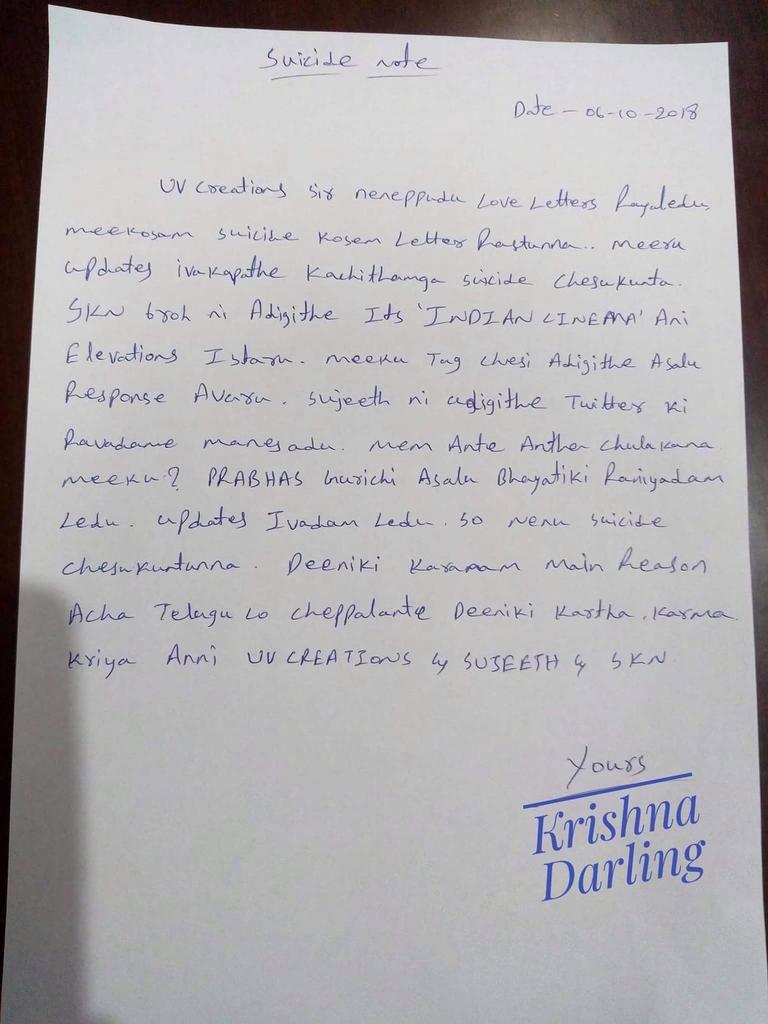 Suicide note
Date - 06-10-2018
UV Creations sir neneppudu Love Letters Rayaledu,
meekosam suicide kosem Letter Rastunna.. meeru
updates ivakapathe Kachithamga suicide chesukunta.
SKN broh ni Adigithe Its 'INDIAN CINEMA' Ani
Elevations Istaru. meeku Tag chesi Adigithe Asalu
Response Avaru. Sujeeth ni adigithe Twitter ki
Ravadame manesadu. mem Ante Antha chulakana
meeku? PRABHAS Gurichi Asalu Bhayatiki Raniyadam
Ledu. updates Ivadam Ledu. so nenu suicide
chesukuntunna. Deeniki Karanam main Reason
Acha Telugu Lo cheppalante Deeniki Kartha, Karma
Kriya Anni UV CREATIONS & SUJEETH & SKN
Yours
Krishna
Darling